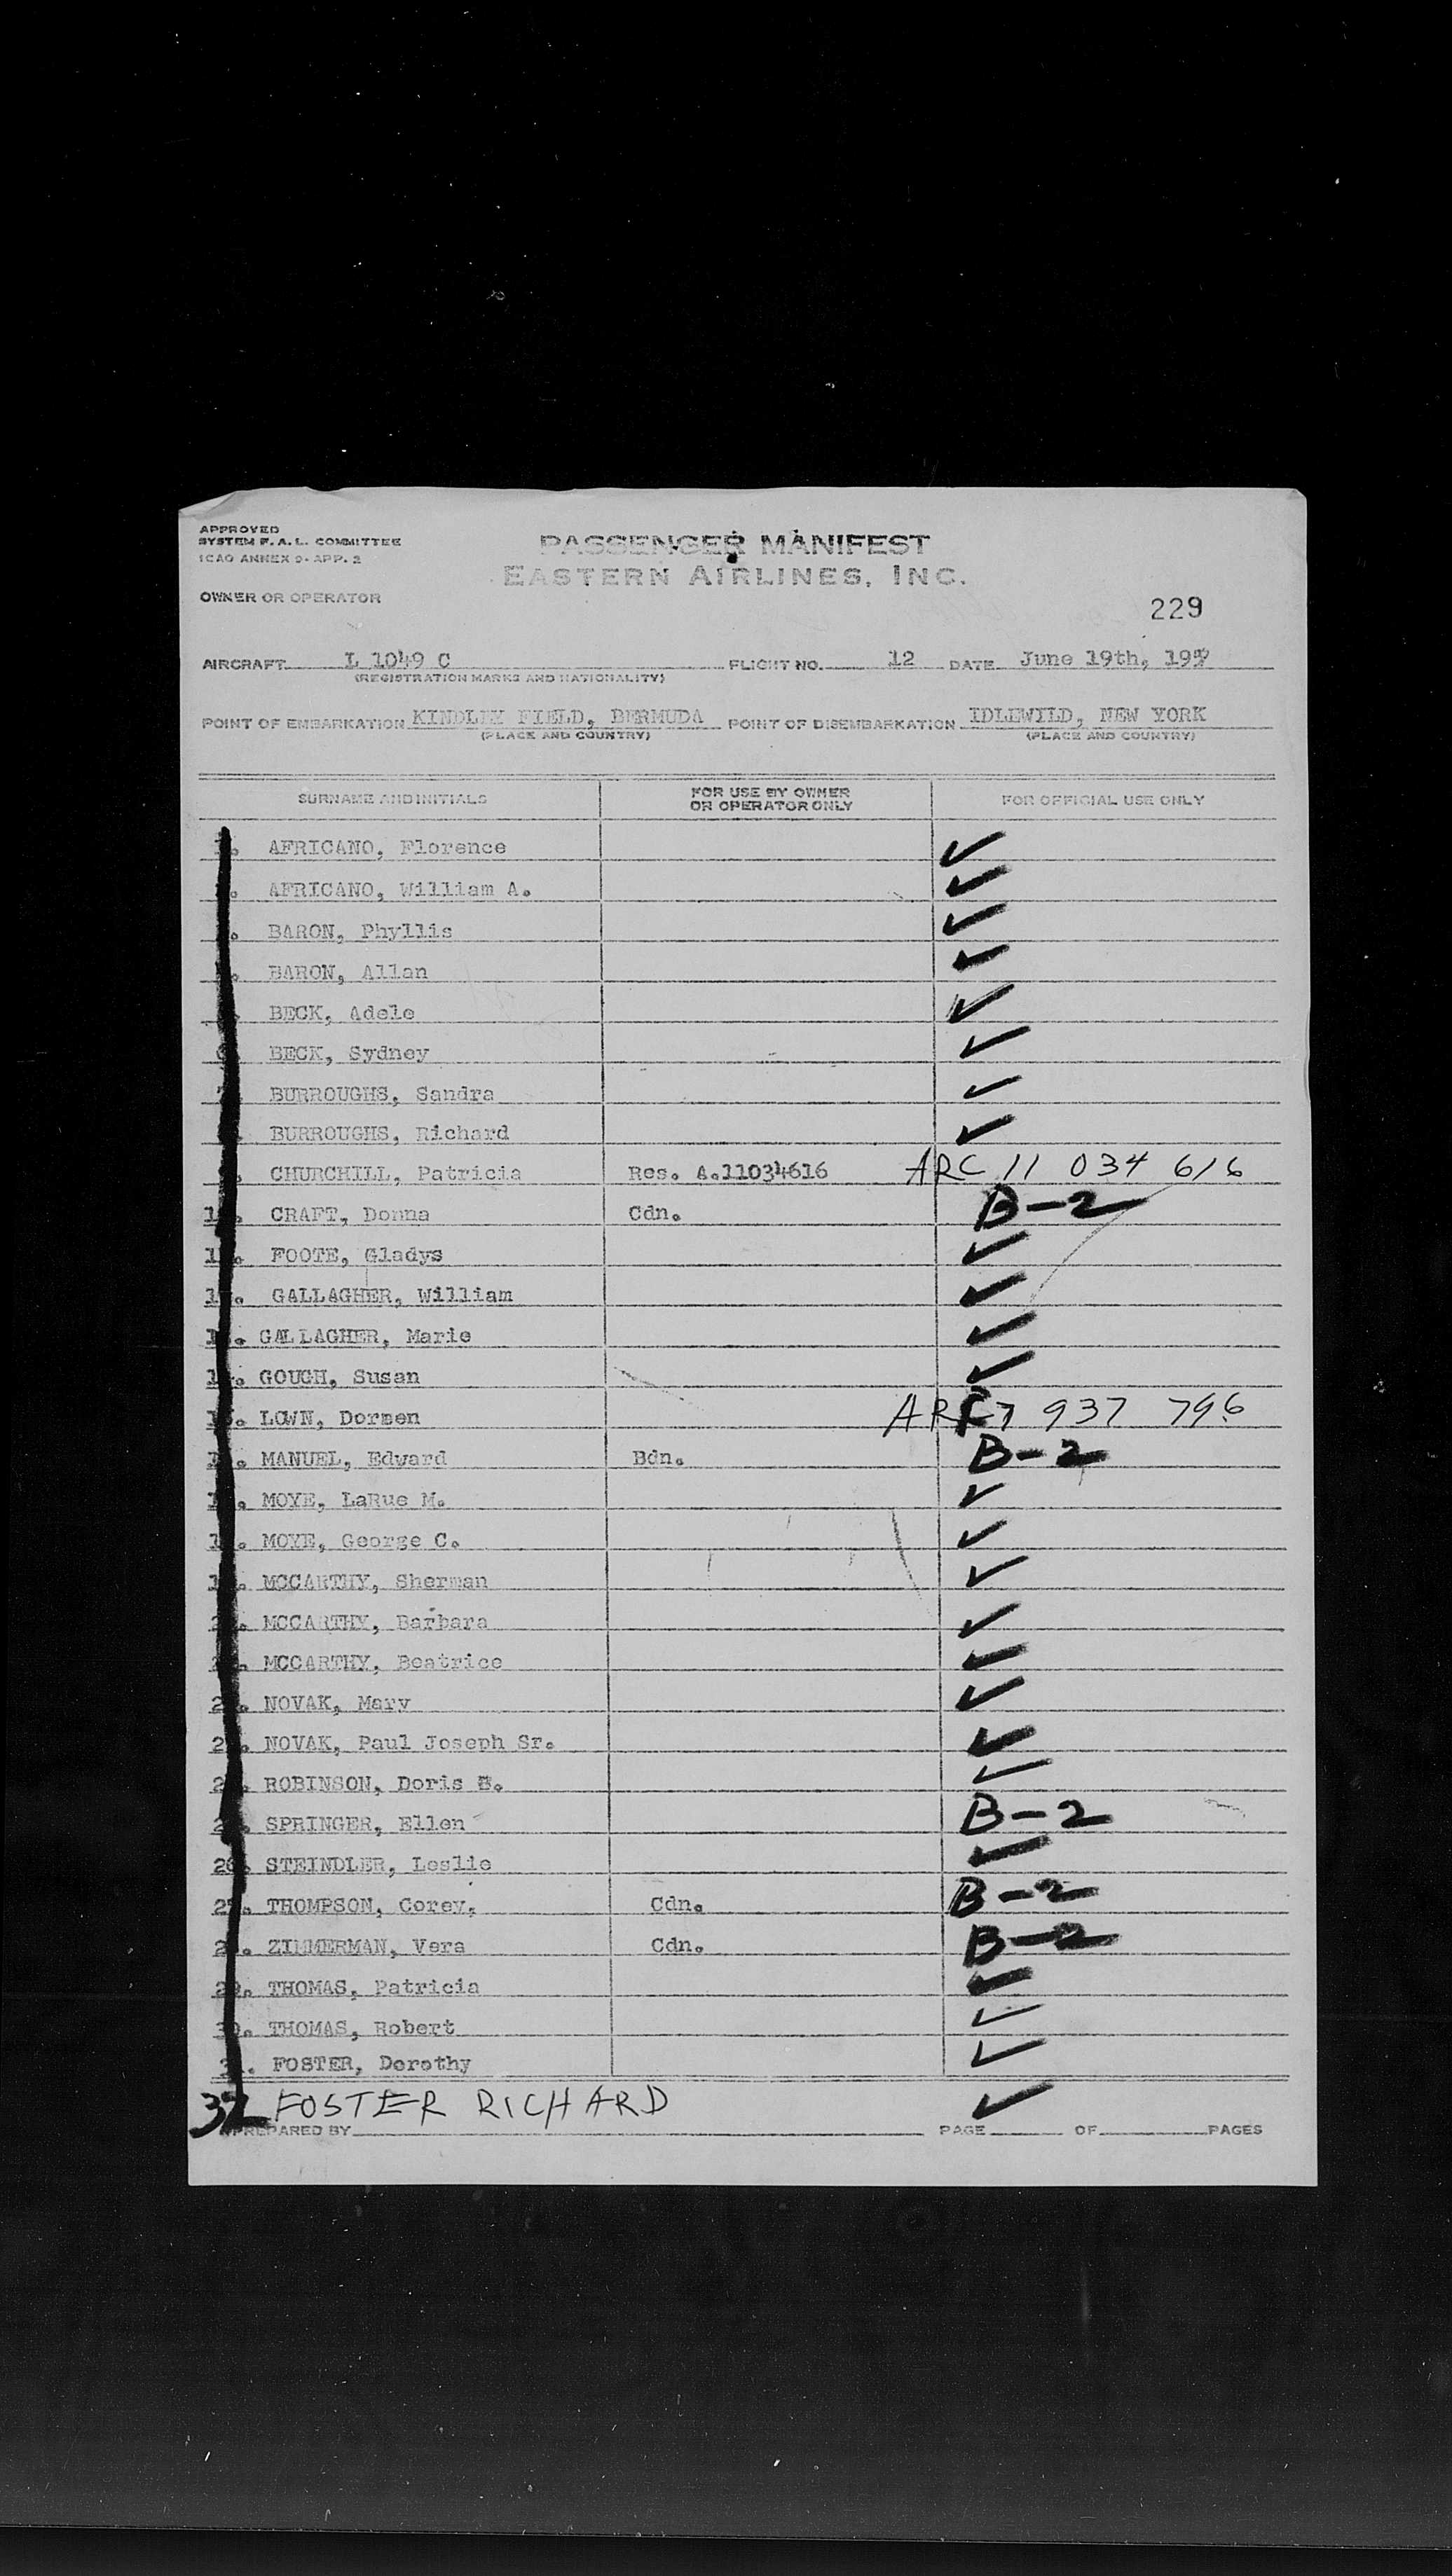 APPROVED
SYSTEM F. A. L. COMMITTEE
ICAO ANNEX 9 - APP. 2
PASSENGER MANIFEST
EASTERN AIRLINES, INC.
OWNER OR OPERATOR
229
AIRCRAFT L 1049 C FLIGHT NO. 12 DATE June 19th, 1957
(REGISTRATION MARKS AND NATIONALITY)
POINT OF EMBARKATION KINDLEY FIELD, BERMUDA POINT OF DISEMBARKATION IDLEWILD, NEW YORK
(PLACE AND COUNTRY) (PLACE AND COUNTRY)
SURNAME AND INITIALS FOR USE BY OWNER OR OPERATOR ONLY FOR OFFICIAL USE ONLY
AFRICANO, Florence ✓
AFRICANO, William A. ✓
BARON, Phyllis ✓
BARON, Allan ✓
BECK, Adele ✓
BECK, Sydney ✓
BURROUGHS, Sandra ✓
BURROUGHS, Richard ✓
CHURCHILL, Patricia Res. A.11034616 ARC 11 034 616
CRAFT, Donna Cdn. B-2
FOOTE, Gladys ✓
GALLAGHER, William ✓
GALLAGHER, Marie ✓
GOUGH, Susan ✓
LOWN, Dormen ARC 7 937 796
MANUEL, Edward Bdn. B-2
MOYE, LaRue M. ✓
MOYE, George C. ✓
MCCARTHY, Sherman ✓
MCCARTHY, Barbara ✓
MCCARTHY, Beatrice ✓
NOVAK, Mary ✓
NOVAK, Paul Joseph Sr. ✓
ROBINSON, Doris B. ✓
SPRINGER, Ellen B-2
26. STEINDLER, Leslie ✓
27. THOMPSON, Corey, Cdn. B-2
ZIMMERMAN, Vera Cdn. B-2
29. THOMAS, Patricia ✓
30. THOMAS, Robert ✓
FOSTER, Dorothy ✓
32 FOSTER RICHARD ✓
PREPARED BY PAGE OF PAGES